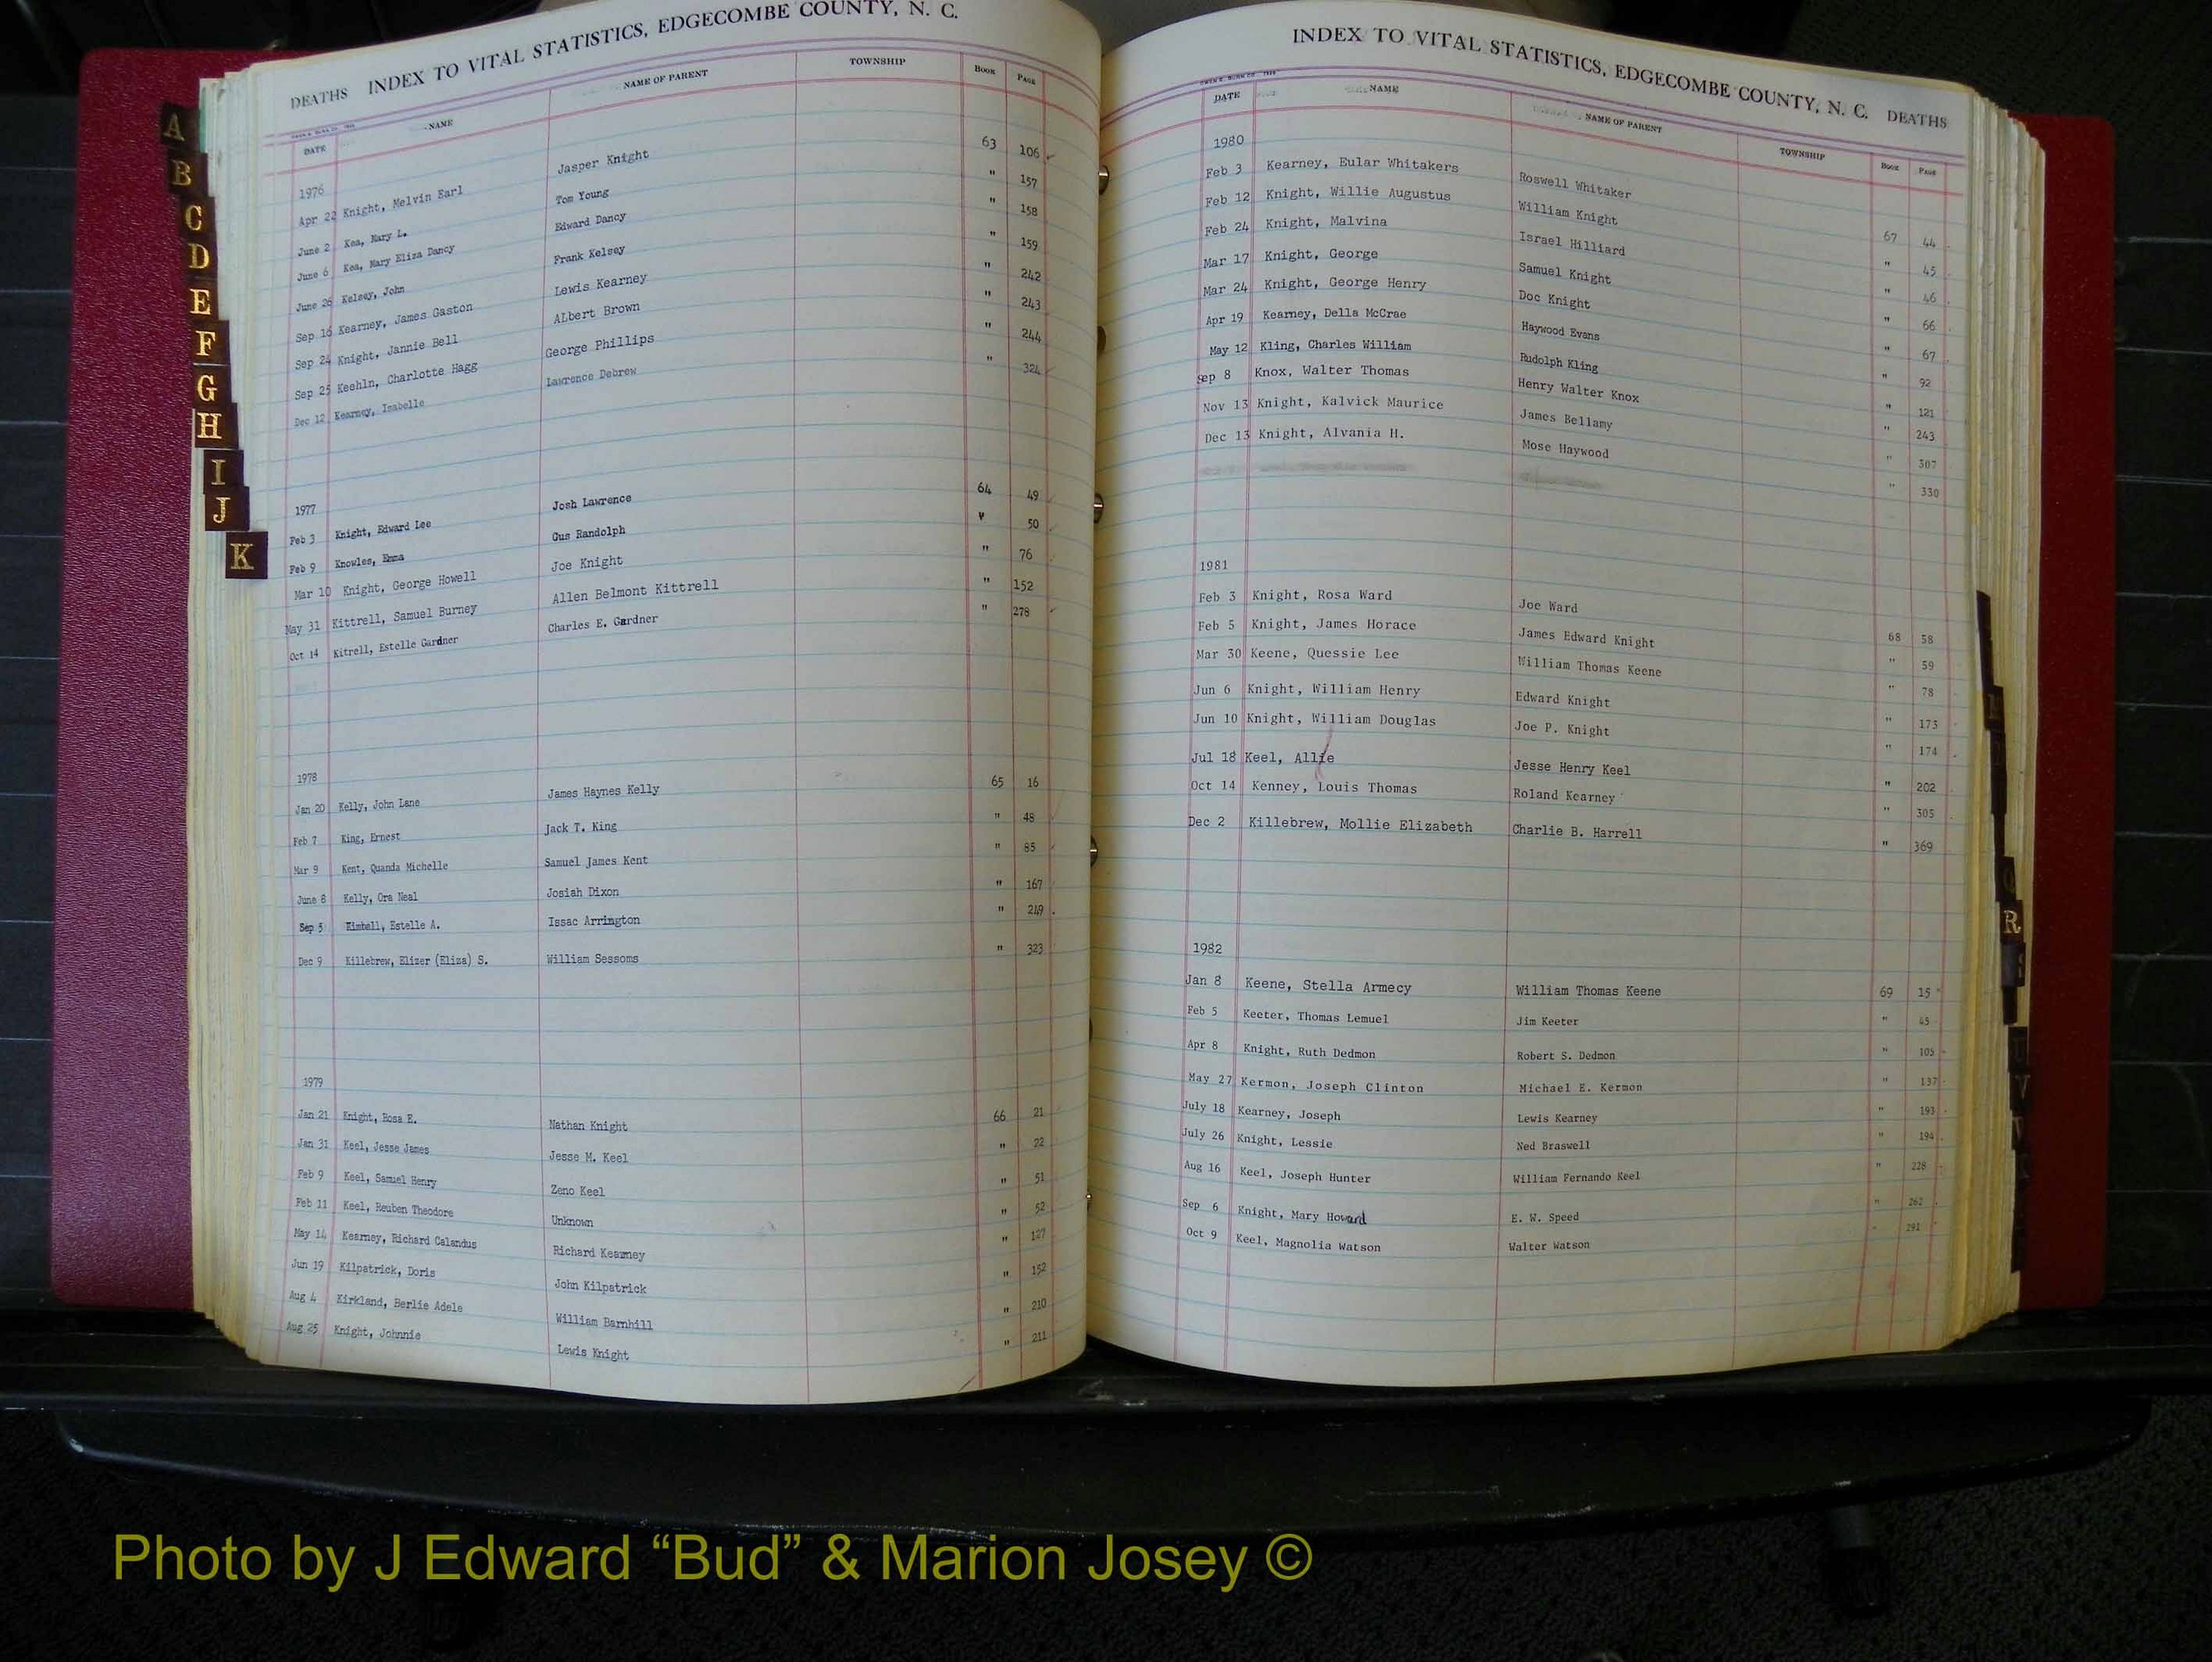 DEATHS INDEX TO VITAL STATISTICS, EDGECOMBE COUNTY, N. C.
DATE NAME NAME OF PARENT TOWNSHIP BOOK PAGE
1976
Apr 22 Knight, Melvin Earl Jasper Knight 63 106
June 2 Kea, Mary L. Tom Young " 157
June 6 Kea, Mary Eliza Dancy Edward Dancy " 158
June 26 Kelsey, John Frank Kelsey " 159
Sep 16 Kearney, James Gaston Lewis Kearney " 242
Sep 24 Knight, Jannie Bell ALbert Brown " 243
Sep 25 Keehln, Charlotte Hagg George Phillips " 244
Dec 12 Kearney, Isabelle Lawrence Debrew " 324
1977
Feb 3 Knight, Edward Lee Josh Lawrence 64 49
Feb 9 Knowles, Emma Gus Randolph " 50
Mar 10 Knight, George Howell Joe Knight " 76
May 31 Kittrell, Samuel Burney Allen Belmont Kittrell " 152
Oct 14 Kitrell, Estelle Gardner Charles E. Gardner " 278
1978
Jan 20 Kelly, John Lane James Haynes Kelly 65 16
Feb 7 King, Ernest Jack T. King " 48
Mar 9 Kent, Quanda Michelle Samuel James Kent " 85
June 8 Kelly, Ora Neal Josiah Dixon " 167
Sep 5 Kimball, Estelle A. Issac Arrington " 249
Dec 9 Killebrew, Elizer (Eliza) S. William Sessoms " 323
1979
Jan 21 Knight, Rosa E. Nathan Knight 66 21
Jan 31 Keel, Jesse James Jesse M. Keel " 22
Feb 9 Keel, Samuel Henry Zeno Keel " 51
Feb 11 Keel, Reuben Theodore Unknown " 52
May 14 Kearney, Richard Calandus Richard Kearney " 127
Jun 19 Kilpatrick, Doris John Kilpatrick " 152
Aug 4 Kirkland, Berlie Adele William Barnhill " 210
Aug 25 Knight, Johnnie Lewis Knight " 211
A
B
C
D
E
F
G
H
I
J
K
INDEX TO VITAL STATISTICS, EDGECOMBE COUNTY, N. C. DEATHS
DATE NAME NAME OF PARENT TOWNSHIP BOOK PAGE
1980
Feb 3 Kearney, Eular Whitakers Roswell Whitaker 67 44
Feb 12 Knight, Willie Augustus William Knight " 45
Feb 24 Knight, Malvina Israel Hilliard " 46
Mar 17 Knight, George Samuel Knight " 66
Mar 24 Knight, George Henry Doc Knight " 67
Apr 19 Kearney, Della McCrae Haywood Evans " 92
May 12 Kling, Charles William Rudolph Kling " 121
Sep 8 Knox, Walter Thomas Henry Walter Knox " 243
Nov 13 Knight, Kalvick Maurice James Bellamy " 307
Dec 13 Knight, Alvania H. Mose Haywood " 330
1981
Feb 3 Knight, Rosa Ward Joe Ward 68 58
Feb 5 Knight, James Horace James Edward Knight " 59
Mar 30 Keene, Quessie Lee William Thomas Keene " 78
Jun 6 Knight, William Henry Edward Knight " 173
Jun 10 Knight, William Douglas Joe P. Knight " 174
Jul 18 Keel, Allie Jesse Henry Keel " 202
Oct 14 Kenney, Louis Thomas Roland Kearney " 305
Dec 2 Killebrew, Mollie Elizabeth Charlie B. Harrell " 369
1982
Jan 8 Keene, Stella Armecy William Thomas Keene 69 15
Feb 5 Keeter, Thomas Lemuel Jim Keeter " 45
Apr 8 Knight, Ruth Dedmon Robert S. Dedmon " 105
May 27 Kermon, Joseph Clinton Michael E. Kermon " 137
July 18 Kearney, Joseph Lewis Kearney " 193
July 26 Knight, Lessie Ned Braswell " 194
Aug 16 Keel, Joseph Hunter William Fernando Keel " 228
Sep 6 Knight, Mary Howard E. W. Speed " 262
Oct 9 Keel, Magnolia Watson Walter Watson " 291
R
Photo by J Edward “Bud” & Marion Josey ©